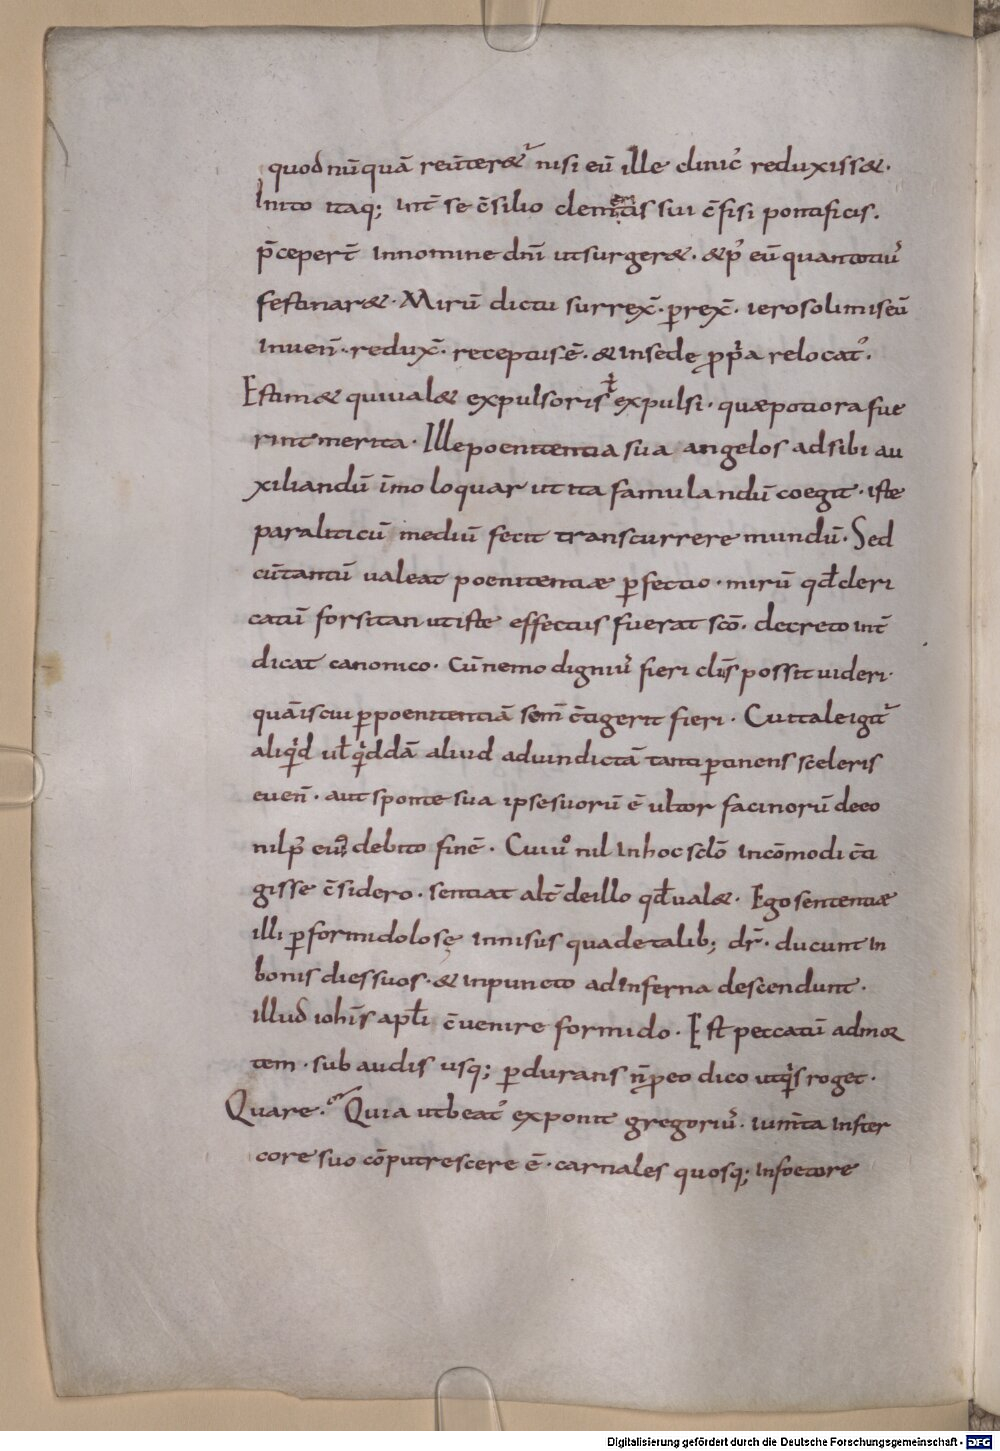 quod nū̄quā reūteret᷑ nisi eū ille diuic᷒ reduxisset.
Inito itaq; int̄ se c̄silio clem̄tis sui c̄fisi pontificis.
p̄cepert̄ in nomine dn̄i ut surgeret. & p᷒ eū quantotiu᷒
festinaret. Mirū dictu surrex̄. ꝑrex̄. ierosolimis eū
inuen̄. redux̄. receptus ē. & in sede ꝓpͥa relocat᷒.
Estimet qui ualet expulsoris ł expulsi. quæ potiora fue
rint merita. Ille poenitentia sua angelos ad sibi au
xiliandū īmo loquar ut ita famulandū coegit. iste
paraliticū mediū fecit transcurrere mundū. Sed
cū tantū ualeat poenitentiæ ꝑfectio. mirū qđ cleri
catū forsitan ut iste effectus fuerat sc̄o. decreto int̄
dicat canonico. Cū nemo digniu᷒ fieri cl̄is possit uideri.
quā is cui ꝑ poenitentiā sem̄ c̄tigerit fieri. Cui tale igit᷑
aliqͥd uł qͥddā aliud ad uindictā tanti ꝑtinens sceleris
euen̄. aut sponte sua ipse suorū ē ultor facinorū deeo
nil p̄ eiu᷒ debito finē. Cuiu᷒ nil in hoc sc̄lo incōmodi c̄ti
gisse c̄sidero. sentiat alt̄ de illo qđ ualet. Ego sententiæ
illi ꝑ formidolosę innisus qua de talib; dr̄. ducunt in
bonis dies suos. & in puncto ad inferna descendunt.
illud ioh̄is apłi c̄uenire formido. Est peccatū ad mor
tem. subaudis usq; ꝑdurans n̄ p eo dico ut qͥs roget.
Quare. Quia ut beat᷒ exponit gregoriu᷒. ium̄ta in ster
core suo cōputrescere ē. carnales quosq; in foetore
Digitalisierung gefördert durch die Deutsche Forschungsgemeinschaft - DFG